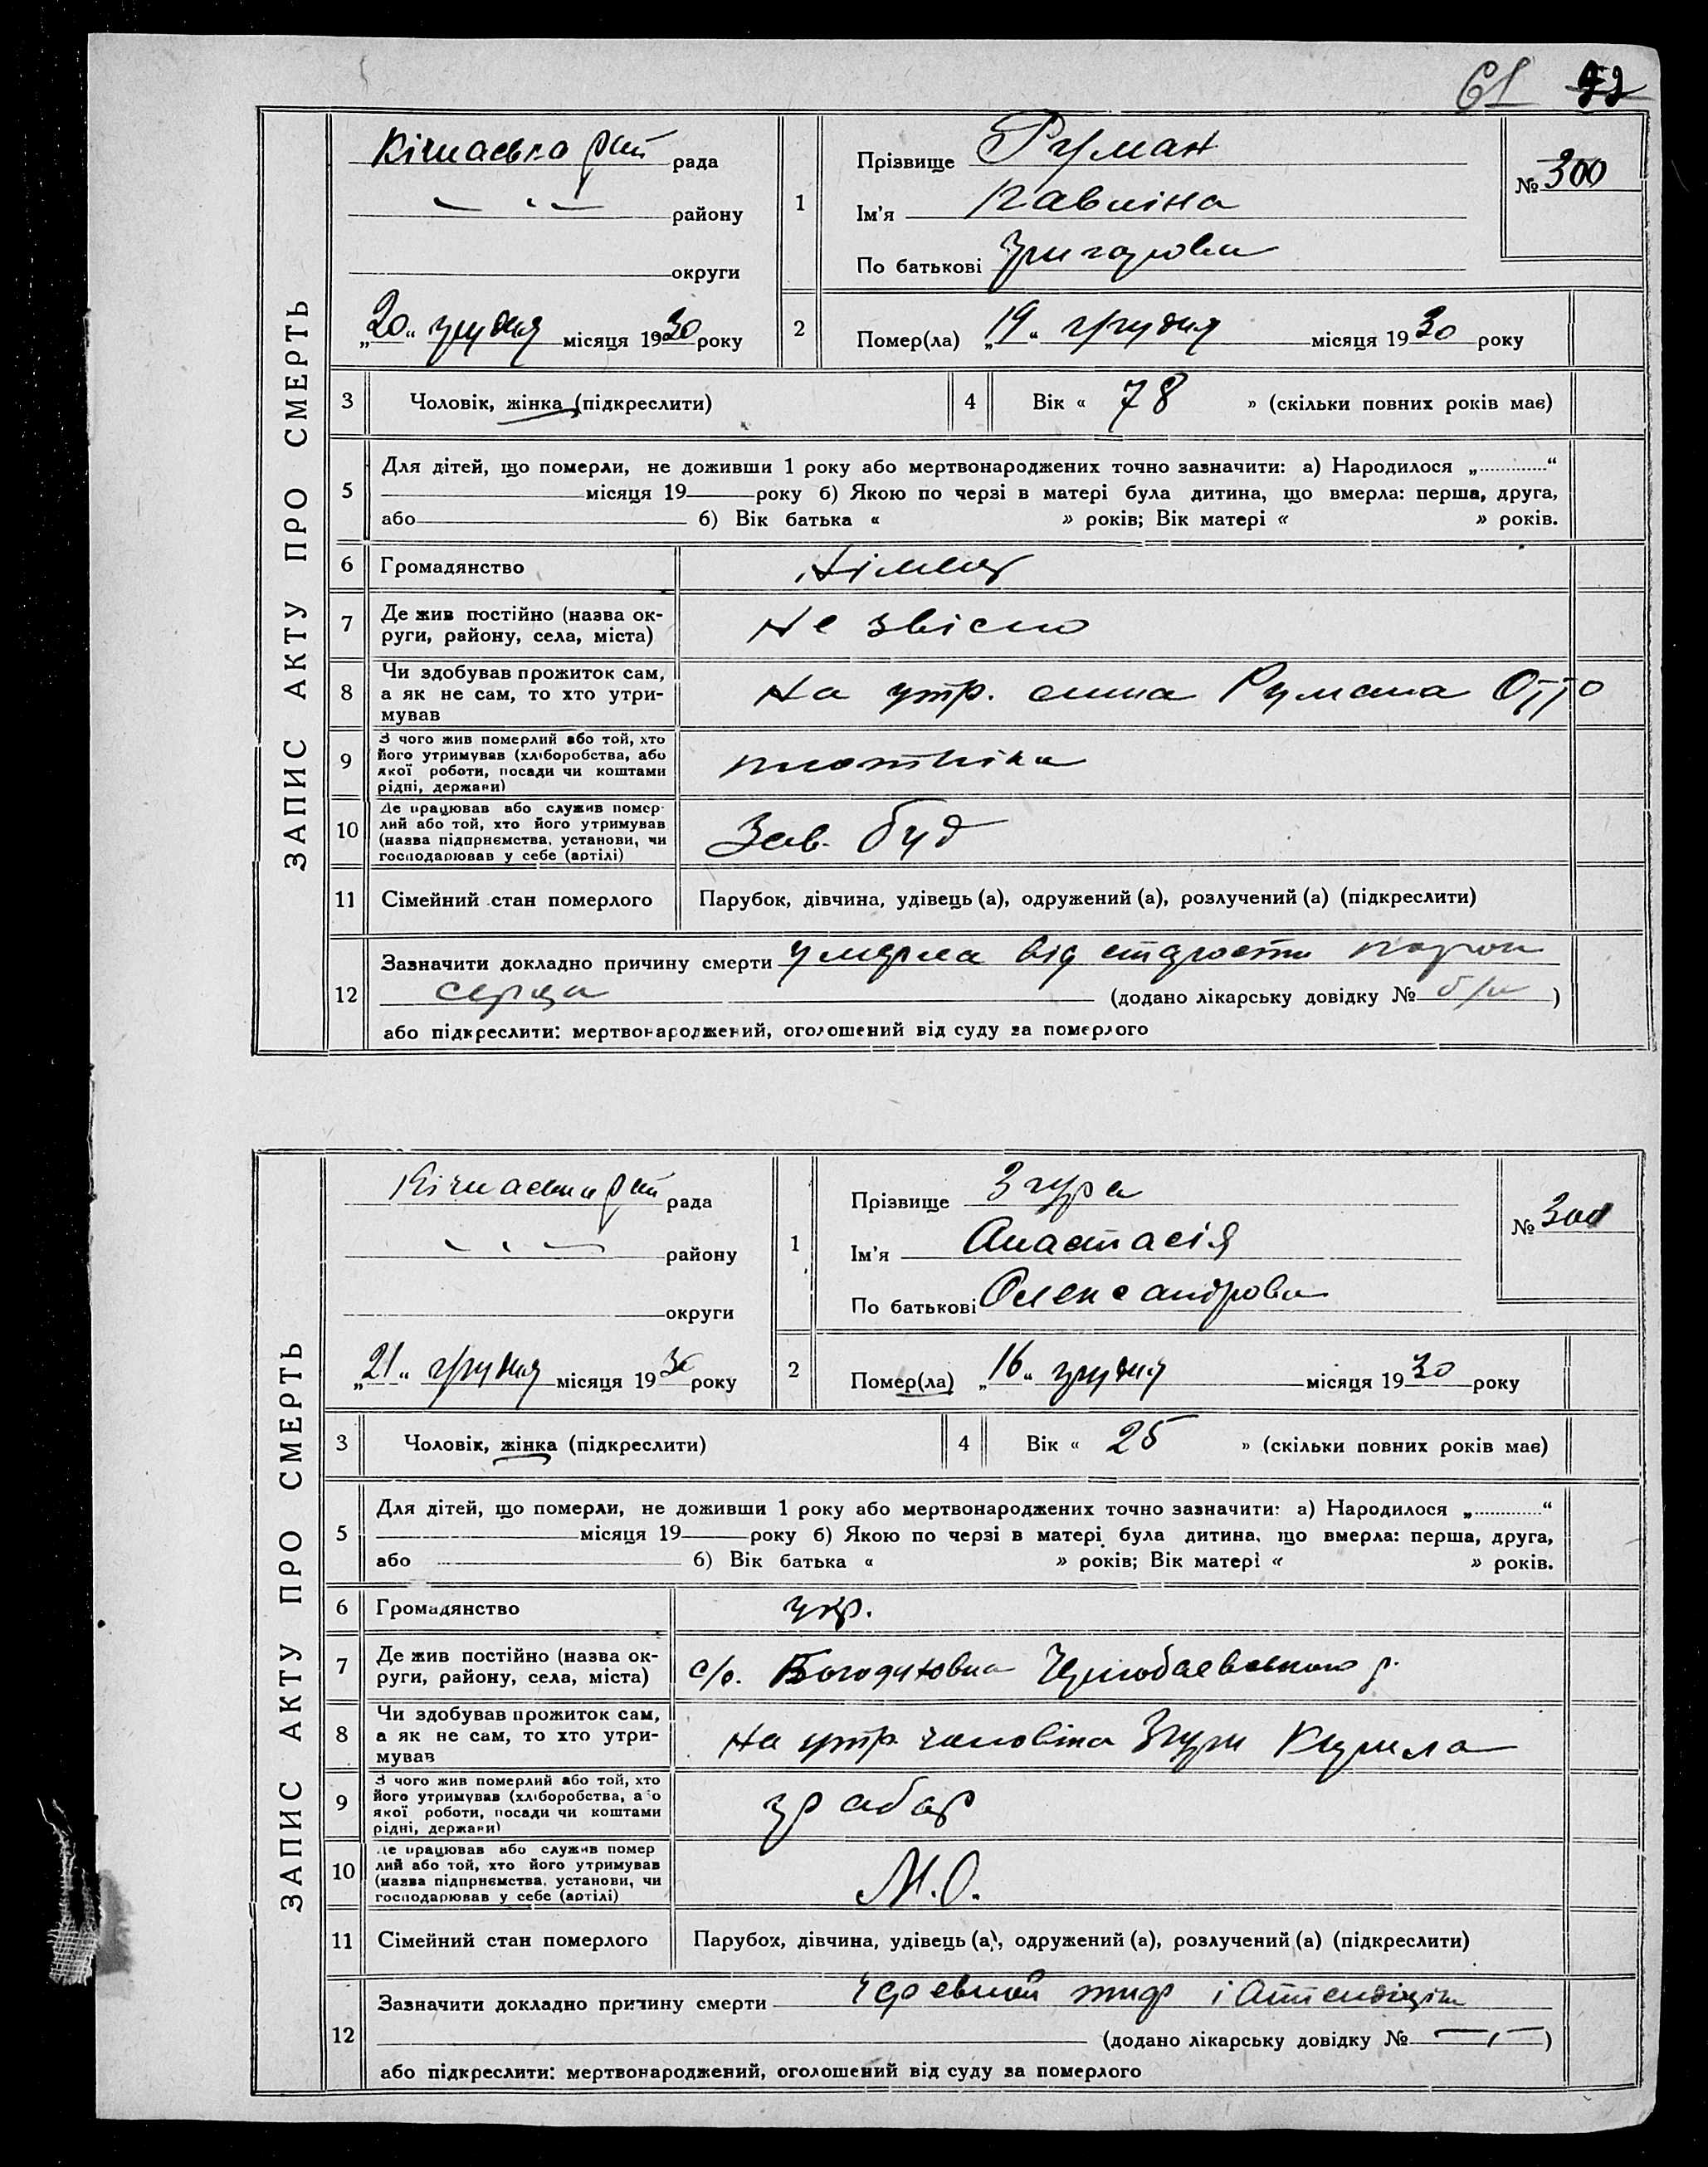 61 72
ЗАПИС АКТУ ПРО СМЕРТЬ
Кічкаська рай рада
— „ — району
округи
„20“ грудня місяця 1930 року
1
Прізвище Руман
Ім'я Павліна
По батькові Григоровна
№ 300
2
Помер(ла) „19“ грудня місяця 1930 року
3 Чоловік, жінка (підкреслити)
4 Вік « 78 » (скільки повних років має)
5
Для дітей, що померли, не доживши 1 року або мертвонароджених точно зазначити: а) Народилося „ “
місяця 19 року б) Якою по черзі в матері була дитина, що вмерла: перша, друга,
або б) Вік батька « » років; Вік матері « » років.
6 Громадянство
7 Де жив постійно (назва ок-
руги, району, села, міста)
Не звісно
8 Чи здобував прожиток сам,
а як не сам, то хто утри-
мував
На утр. сина Румана Отто
9 З чого жив померлий або той, хто
його утримував (хліборобства, або
якої роботи, посади чи коштами
рідні, держави)
плотніка
10 Де працював або служив помер-
лий або той, хто його утримував
(назва підприємства, установи, чи
господарював у себе (артілі)
Зав. буд
11 Сімейний стан померлого Парубок, дівчина, удівець (а), одружений (а), розлучений (а) (підкреслити)
12
Зазначити докладно причину смерти умерла від старости порок
серця (додано лікарську довідку № б/н )
або підкреслити: мертвонароджений, оголошений від суду за померлого
ЗАПИС АКТУ ПРО СМЕРТЬ
Кічкаська рай рада
— „ — району
округи
„21“ грудня місяця 1930 року
1
Прізвище Згура
Ім'я Анастасія
По батькові Олександровна
№ 301
2
Помер(ла) „16“ грудня місяця 1930 року
3 Чоловік, жінка (підкреслити)
4 Вік « 25 » (скільки повних років має)
5
Для дітей, що померли, не доживши 1 року або мертвонароджених точно зазначити: а) Народилося „ “
місяця 19 року б) Якою по черзі в матері була дитина, що вмерла: перша, друга,
або б) Вік батька « » років; Вік матері « » років.
6 Громадянство укр.
7 Де жив постійно (назва ок-
руги, району, села, міста)
с/о. Чорнобаевського р.
8 Чи здобував прожиток сам,
а як не сам, то хто утри-
мував
На утр. чоловіка Згури Кирила
9 З чого жив померлий або той, хто
його утримував (хліборобства, або
якої роботи, посади чи коштами
рідні, держави)
грабар
10 Де працював або служив помер
лий або той, хто його утримував
(назва підприємства, установи, чи
господарював у себе (артілі)
М.О.
11 Сімейний стан померлого Парубок, дівчина, удівець (а), одружений (а), розлучений (а) (підкреслити)
12
Зазначити докладно причину смерти черевний тиф і
(додано лікарську довідку № — „ — )
або підкреслити: мертвонароджений, оголошений від суду за померлого